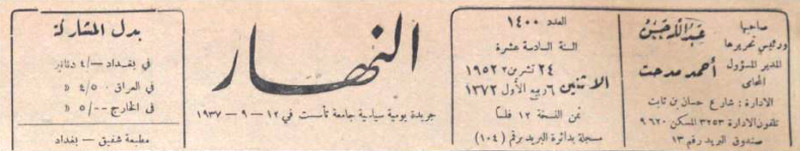 صاحبها
ورئيس تحريرها
عبد الله حسن
المدير المسؤول
المحامي
أحمد مدحت
الادارة : شارع حسان بن ثابت
تلفون الادارة ٣٢٥٣ المسكن ٩٦٢٠
صندوق البريد رقم ١٣
العدد ١٤٠٠
السنة السادسة عشرة
الاثنين
٢٤ تشرين ٢ ١٩٥٢
٦ ربيع الأول ١٣٧٢
ثمن النسخة ١٢ فلسا
مسجلة بدائرة البريد برقم (١٠٤)
النهار
جريدة يومية سياسية جامعة تأسست في ١٢ – ٩ – ١٩٣٧
بدل المشاركة
في بغداد -/٤ دنانير
في العراق ٤/٥٠٠ »
في الخارج -/٥ »
مطبعة شفيق – بغداد